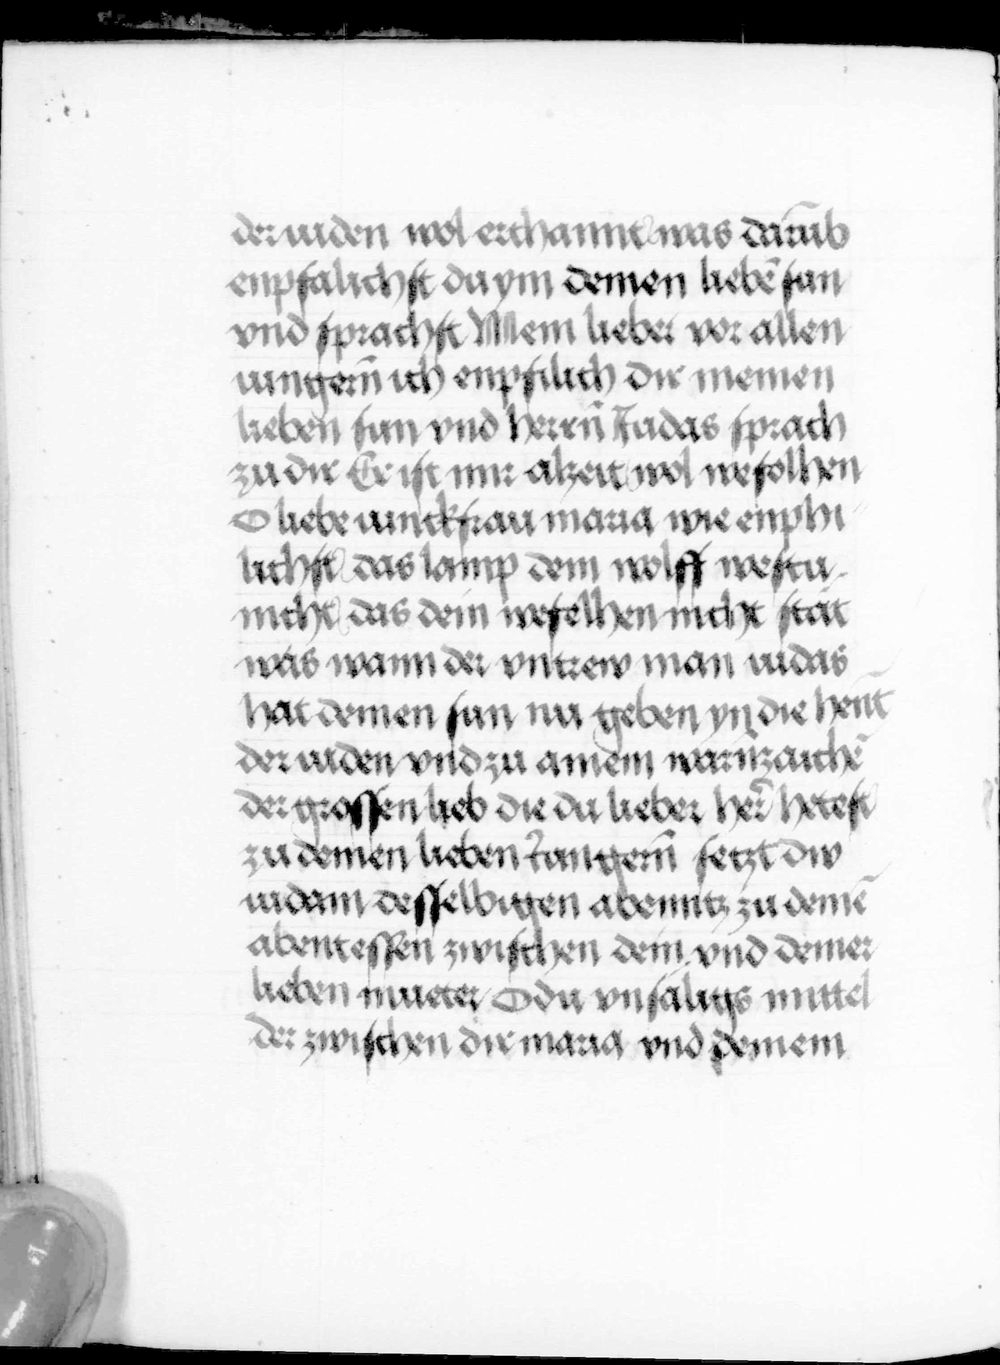 der iuden wol erchannt was darūb
enpfalichst du ym deinen liebē sun
vnd sprachst Mein lieber vor allen
iungerñ ich enpfilich dir meinen
lieben sun vnd herrñ Judas sprach
zu dir Er ist mir alzeit wol wefolhen
O liebe iunckfrau maria wie enphi
lichst das lamp dem wolff westu
nicht das dein wefelhen nicht stät
was wann der vntrew man iudas
hat deinen sun nu geben yn die henñt
der iuden vnd zu ainem warñzaichē
der grossen lieb die du lieber her̄ hetest
zu deinen lieben Jungerñ setzt dw
iudam desselbigen abenntz zu deinē
abentessen zwischen dein vnd deiner
lieben mueter O du vnsäligs mittel
der zwischen dir maria vnd deinem